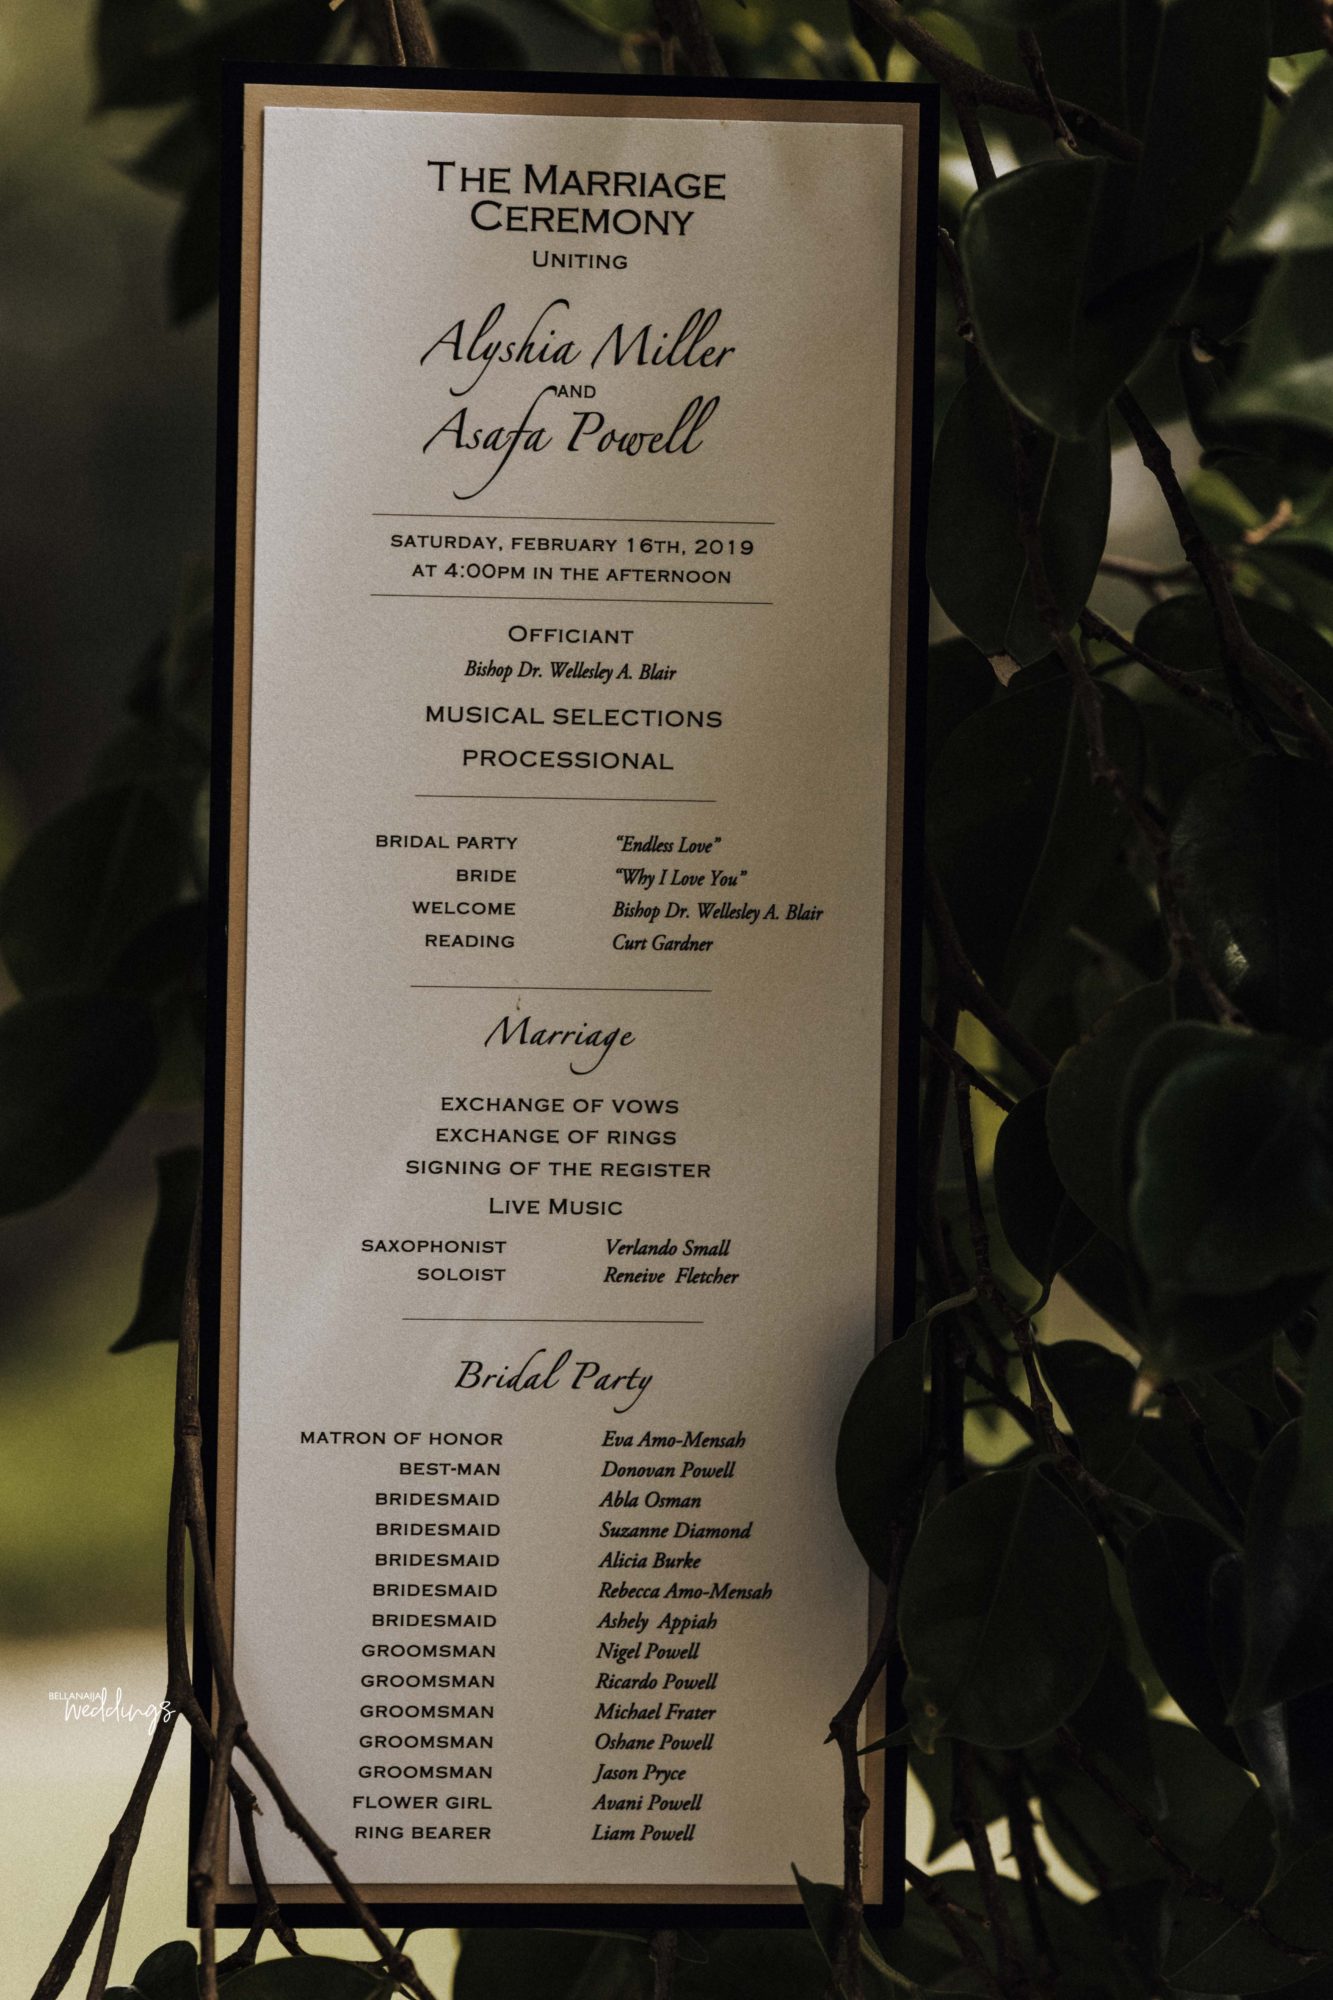 THE MARRIAGE
CEREMONY
UNITING
Alyshia Miller
AND
Asafa Powell
SATURDAY, FEBRUARY 16TH, 2019
AT 4:00PM IN THE AFTERNOON
OFFICIANT
Bishop Dr. Wellesley A. Blair
MUSICAL SELECTIONS
PROCESSIONAL
BRIDAL PARTY "Endless Love"
BRIDE "Why I Love You"
WELCOME Bishop Dr. Wellesley A. Blair
READING Curt Gardner
Marriage
EXCHANGE OF VOWS
EXCHANGE OF RINGS
SIGNING OF THE REGISTER
LIVE MUSIC
SAXOPHONIST Verlando Small
SOLOIST Reneive Fletcher
Bridal Party
MATRON OF HONOR Eva Amo-Mensah
BEST-MAN Donovan Powell
BRIDESMAID Abla Osman
BRIDESMAID Suzanne Diamond
BRIDESMAID Alicia Burke
BRIDESMAID Rebecca Amo-Mensah
BRIDESMAID Ashely Appiah
GROOMSMAN Nigel Powell
GROOMSMAN Ricardo Powell
GROOMSMAN Michael Frater
GROOMSMAN Oshane Powell
GROOMSMAN Jason Pryce
FLOWER GIRL Avani Powell
RING BEARER Liam Powell
BELLANAIJA
weddings